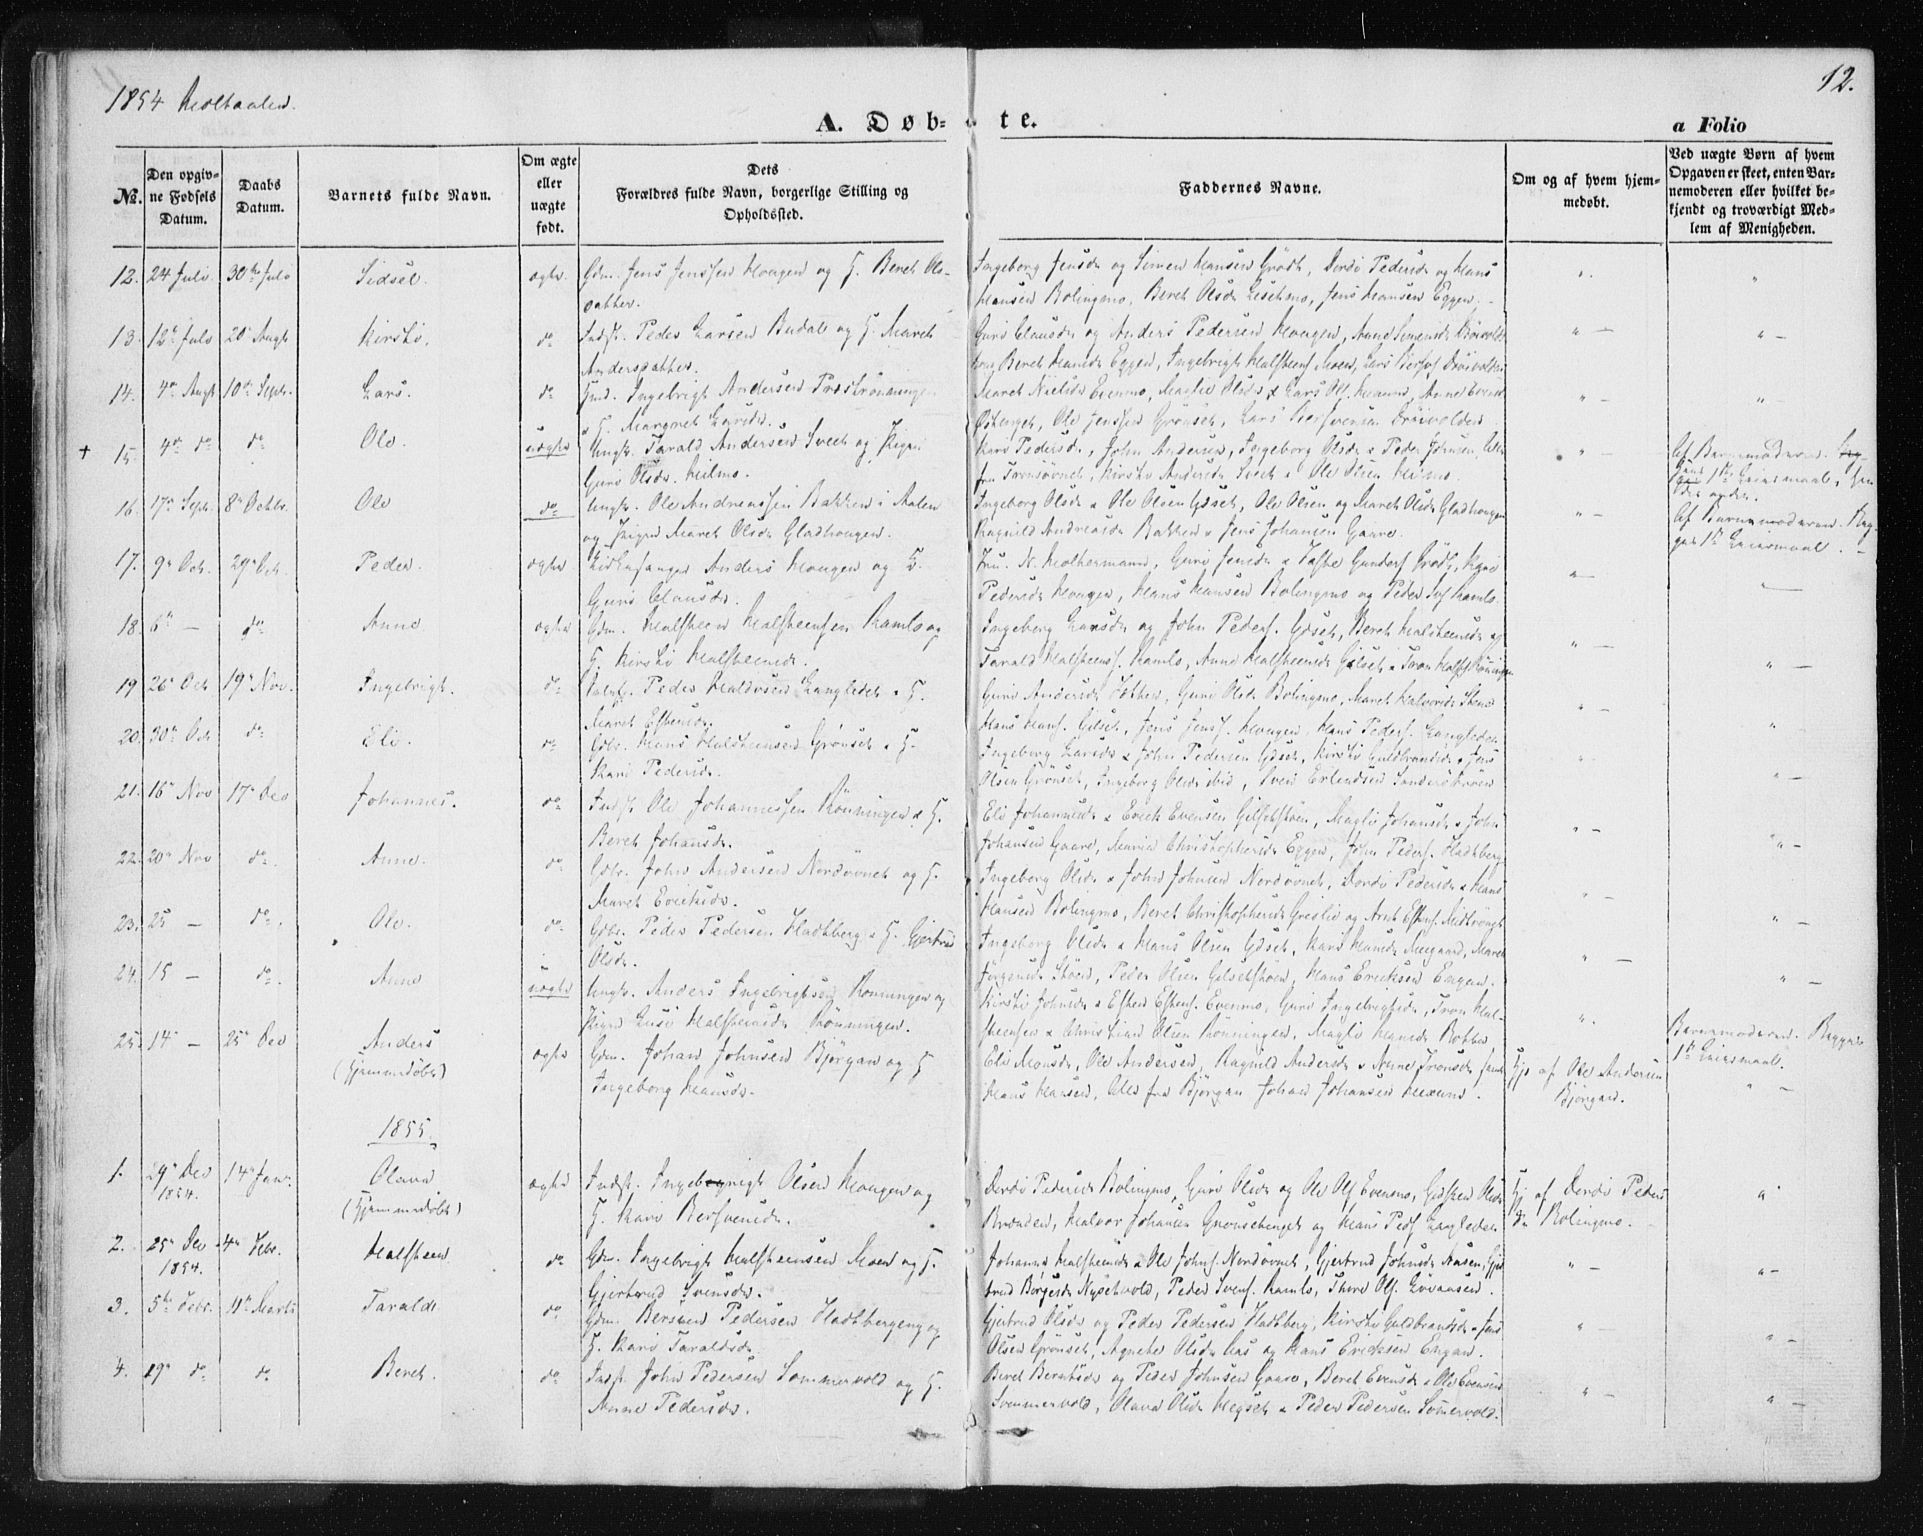 1854 Holtaalen.
12.
A. Døb- te.
a Folio
№.
Den opgivne Fødsels Datum.
Daabs Datum.
Barnets fulde Navn.
Om ægte eller uægte født.
Dets Forældres fulde Navn, borgerlige Stilling og Opholdssted.
Faddernes Navne.
Om og af hvem hjemmedøbt.
Ved uægte Børn af hvem Opgaven er skeet, enten Barnemoderen eller hvilket bekjendt og troværdigt Medlem af Menigheden.
12. 24 Juli 30te Juli Sidsel. ægte. Gdm. Jens Jenssen Hougen og H. Beret Ols-
datter.
Ingeborg Jensd. og Simen Hansen Grødt, Dordi Pedersd. og Hans
Hansen Bolingmo, Beret Olsd. , Jens Hansen Eggen.
13. 12te Juli 20de Augt Kirsti. do Indst. Peder Larsen Budal og H. Maret
Andersdatter.
Guri Clausd. og Anders Pedersen Hougen, Anne Simensd.
Beret Hansd. Eggen, Ingebrigt Halsteens. Moen, Lars
14. 4de Augt 10de Septr. Lars. do Hmd. Ingebrigt Andersen
& H. Margret Larsd.
Maret Nielsd. Evenmo, Marlie Olsd. & Lars Ols. , Anne Evensd.
Østenget, Ole Jenssen Grønset, Lars
+ 15. 4de do do Ole. uægte Ungk. Tarald Andersen Svect og Pigen
Guri Olsd. Heilmo.
Kari Pedersd., John Andersen, Ingeborg Olsd. & Peder Johnsen, alle
fra , Kirsti Andersd. Svect & Ole Olsen Heilmo.
Af Barnemoderen.
1ste Leiermaal,
16. 17de Septr. 8de Octbr. Ole do Ungk. Ole Andreassen Bakken i Aalen
og Pigen Maret Olsd. Gladhougen.
Ingeborg Olsd. & Ole Olsen Gilset, Ole Olsen og Maret Olsd. Gladhougen
Ragnild Andreasd. Bakken & Jens Johansen Gaare.
Af Barnemoderen. Beg-
ges 1ste Leiermaal. -
17. 9de Oct. 29de Oct. Peder. ægte Kirkesanger Anders Hougen og H.
Guri Clausd.
Fru N. Holtermann, Guri Jensd. & Gunders. Grødt, Kari
Pedersd. Hougen, Hans Hansen Bolingmo og Peder Ramlo.
18. 6te - do Anne ægte Gdm. Halsteen Halsteensen Ramlo og
H. Kirsti Halsteensd.
Ingeborg Larsd. og John Peders. Gilset, Beret Halsteensd. og
Tarald Halsteens. Ramlo, Anne Halsteensd. Gilset &
19 26de Oct 19de Nov. Ingebrigt. do Peder Haldosen Langledet & H.
Maret Estensd.
Guri Andersd. , Guri Olsd. Bolingmo, Maret Halvorsd.
Hans Hans. Gilset, Jens Jens. Hougen, Hans Peders. Langledet
20. 30te Oct do Eli. do Gdbr. Hans Halsteensen Grønset & H.
Kari Pedersd.
Ingeborg Larsd. & John Pedersen Gilset, Kirsti Guldbrandsd. & Jens
Olsen Grønset, Ingeborg Olsd. ibid, Svend Erlendsen
21. 16de Nov 17de Dec Johannes. do Indst. Ole Johannessen Rønningen & H.
Beret Johansd.
Eli Johannesd. & Erick Evensen Gilsetstøen, Magli Johansd. & John
Johansen Gaare, Maria Christophersd. Eggen, John Peders. Hadtberg
22. 20de Nov do. Anne. do Gdbr. John Andersen Nordøvnet og H.
Maret Ericksd.
Ingeborg Olsd. & John Johnsen Nordøvnet, Dordi Pedersd. & Hans
Hansen Bolingmo, Beret Christophersd. og Arnt Estens.
23. 25 - do. Ole. do Gdbr. Peder Pedersen Hadtberg & H. Gjertrud
Olsd.
Ingeborg Olsd. & Hans Olsen Gilset, Kari Hansd. , Maret
Jørgensd. Støen, Peder Olsen Gilsetstøen, Hans Ericksen Engan.
24. 15 - do. Anne uægte Ungk. Anders Ingebrigtsen Rønningen og
Pigen Lusi Halsteensd. Rønningen.
Kirsti Johnsd. & Esten Estens. Evenmo, Guri Ingebrigtsd., Tron Hal-
steensen & Christian Olsen Rønningen, Magli Hansd.
Barnemoderen. Begges
1ste Leiermaal.
25. 14 - 25de Dec Anders
(Hjemmedøbt)
ægte Gdm. Johan Johnsen Bjørgan og H
Ingeborg Hansd.
Eli Monsd., Ole Andersen, Ragnild Andersd. & Anne Tronsd. samt
Hans Hansen, Alle fra Bjørgan Johan Johansen .
Hj. af Ole Andersen
Bjørgan.
1855.
1. 29de Dec
1854. 14de Janr. Olava
(Hjemmedøbt)
ægte Indst. Ingebrigt Olsen Hougen og
H. Kari Bersvensd.
Dordi Pedersd. Bolingmo, Guri Olsd. og Ole Ols. Evenmo, Olsd.
Brænden, Halvor Johansen Grønsetenget og Hans Peds. Langledet.
Hj. af Dordi Peders
dr. Bolingmo.
2. 25de Dec
1854. 4de Febr. Halsteen do Gdm. Ingebrigt Halsteensen Moen og H.
Gjertrud Svensd.
Johanna Halsteensd. & Ole Johns. Nordøvnet, Gjertrud Johnsd. Aasen, Gjer
trud Børgesd. Nysetvold, Peder Svens. Ramlo, Thore Ols.
3. 5te Febr. 11te Marts Tarald do Gdm. Bersven Pedersen Hadtbergeng og
H. Kari Taraldsd.
Gjertrud Olsd. og Peder Pedersen Hadtberg, Kirsti Guldbrandsd. & Jens
Olsen Grønset, Agnethe Olsd. Aas og Hans Ericksen Engan.
4. 19de do. do. Beret. do Indst. John Pedersen Sommervold og H.
Anne Pedersd.
Beret Berntsd. og Peder Johnsen Gaare, Beret Evensd. & Ole Evensen
Sommervold, Olava Olsd. Hegset & Peder Pedersen Sommervold.